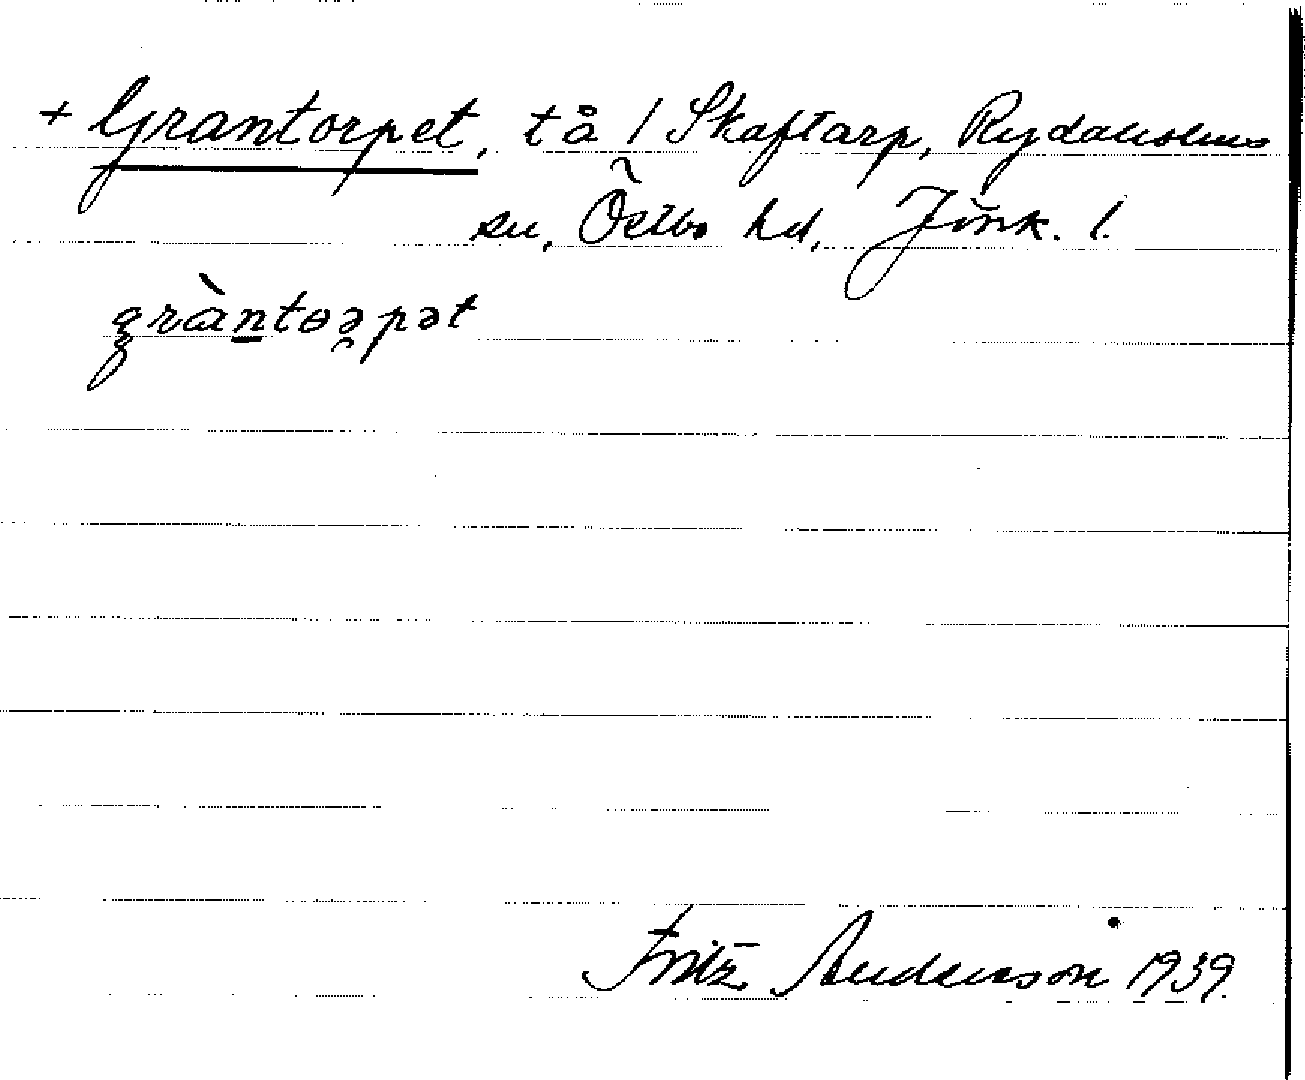 + Grantorpet, tå / Skaftarp, Rydaholms
sn, Östbo hd, Jönk. l.
gràntoəpət
Fritz Anderson 1939.